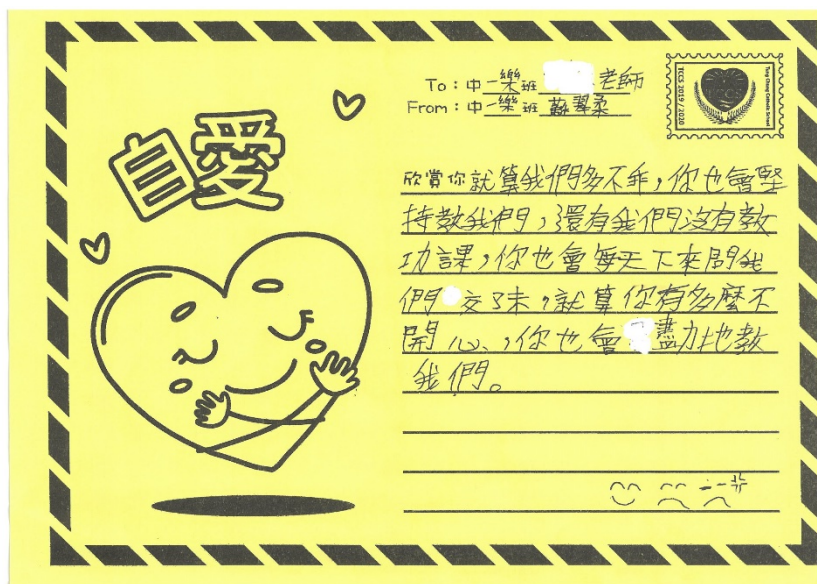 自愛
To：中一樂班 老師
From：中一樂班 蘇翠柔
TCCS 2019 / 2020
Tung Chung Catholic School
TCCS
欣賞你就算我們多不乖，你也會堅
持教我們，還有我們沒有教
功課，你也會每天下來問我
們 交了未，就算你有多麼不
開心，你也會 盡力地教
我們。